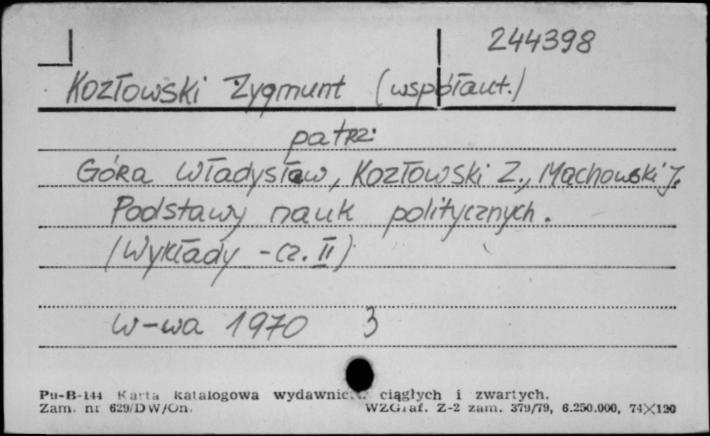 244398
Kozłowski Zygmunt (współaut.)
patrz:
Góra Władysław, Kozłowski Z., Machowski J.
Podstawy nauk politycznych.
(Wykłady - cz. II)
W-wa 1970 3
Pu-B-144 Karta katalogowa ciągłych i zwartych.
Zam. nr 629/DW/On. WZGraf. Z-2 zam. 379/79, 6.250.000, 74X120